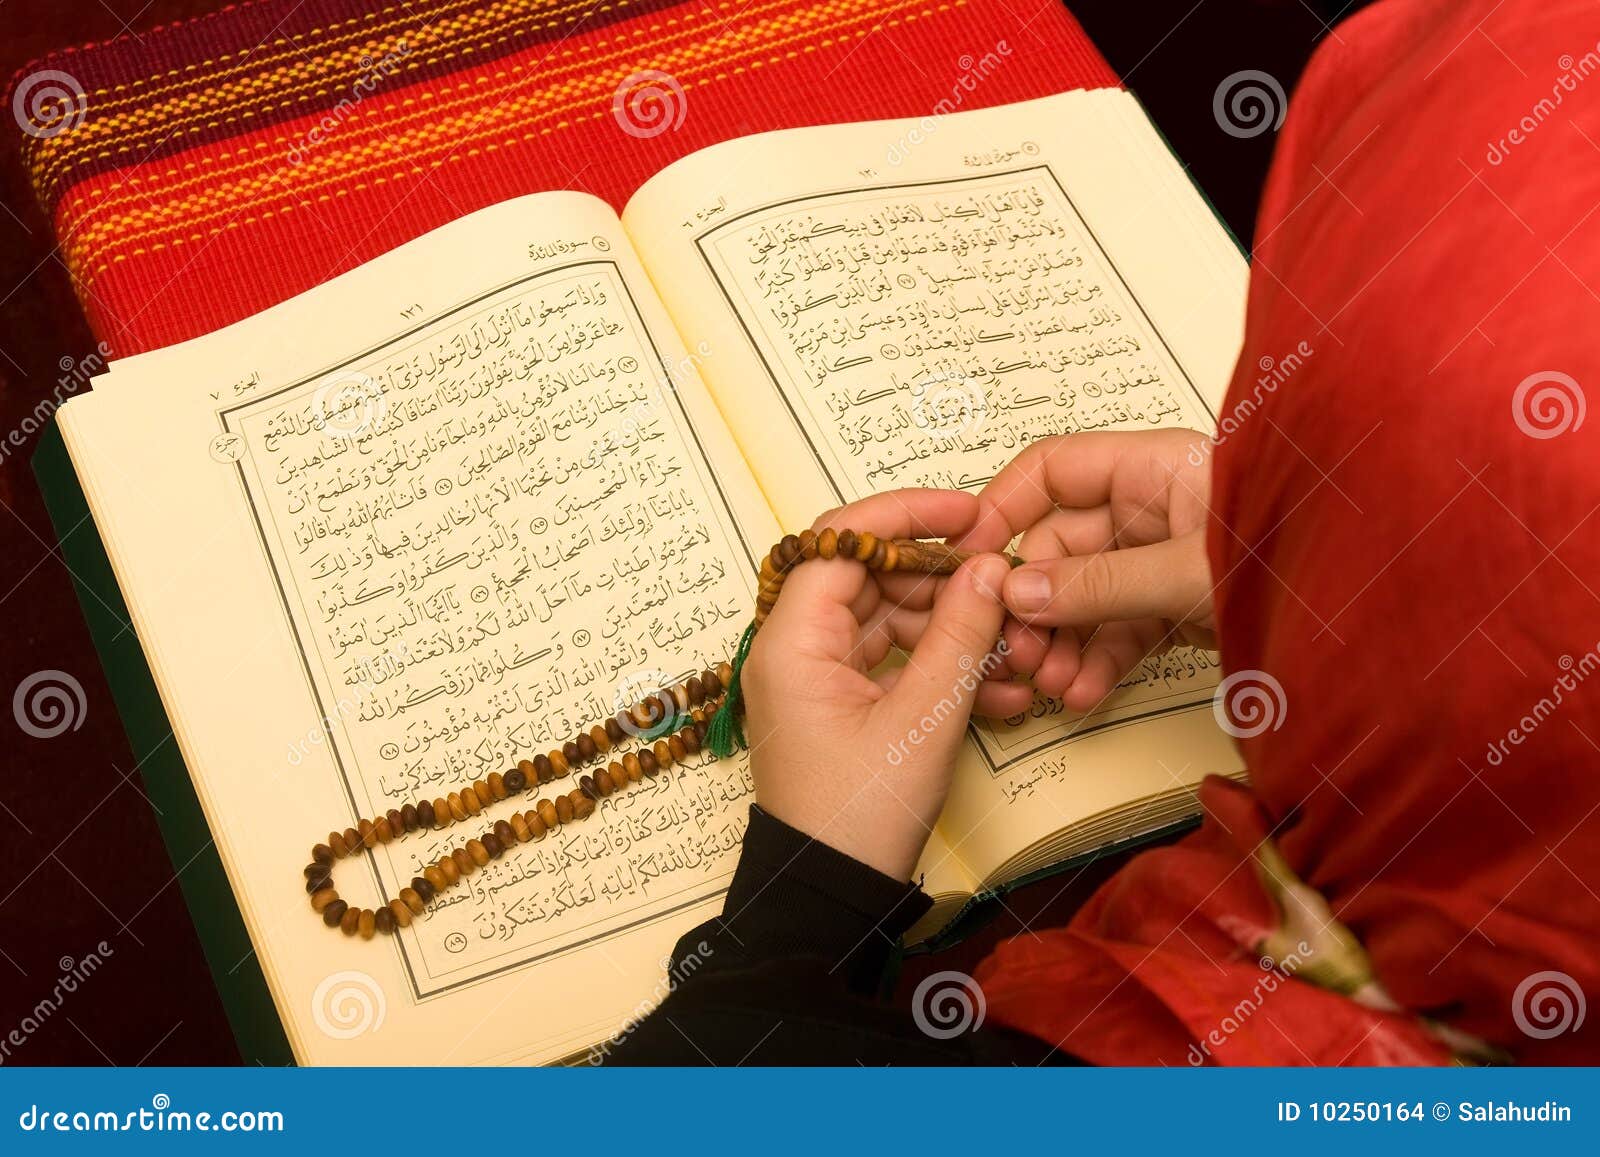 سورة المائدة ٥
١٢٠
الجزء ٦
قُلْ يَا أَهْلَ الْكِتَابِ لَا تَغْلُوا فِي دِينِكُمْ غَيْرَ الْحَقِّ
وَلَا تَتَّبِعُوا أَهْوَاءَ قَوْمٍ قَدْ ضَلُّوا مِنْ قَبْلُ وَأَضَلُّوا كَثِيرًا
وَضَلُّوا عَنْ سَوَاءِ السَّبِيلِ ٧٧ لُعِنَ الَّذِينَ كَفَرُوا
مِنْ بَنِي إِسْرَائِيلَ عَلَى لِسَانِ دَاوُدَ وَعِيسَى ابْنِ مَرْيَمَ
ذَلِكَ بِمَا عَصَوْا وَكَانُوا يَعْتَدُونَ ٧٨ كَانُوا
لَا يَتَنَاهَوْنَ عَنْ مُنْكَرٍ فَعَلُوهُ لَبِئْسَ مَا كَانُوا
يَفْعَلُونَ ٧٩ تَرَى كَثِيرًا مِنْهُمْ يَتَوَلَّوْنَ الَّذِينَ كَفَرُوا
لَبِئْسَ مَا قَدَّمَتْ لَهُمْ أَنْفُسُهُمْ أَنْ سَخِطَ اللَّهُ عَلَيْهِمْ
وَأَنَّهُمْ لَا
وَإِذَا سَمِعُوا
سورة المائدة ٥
١٢١
الجزء ٧
جزء ٧
وَإِذَا سَمِعُوا مَا أُنْزِلَ إِلَى الرَّسُولِ تَرَى أَعْيُنَهُمْ تَفِيضُ مِنَ الدَّمْعِ
مِمَّا عَرَفُوا مِنَ الْحَقِّ يَقُولُونَ رَبَّنَا آمَنَّا فَاكْتُبْنَا مَعَ الشَّاهِدِينَ
٨٣ وَمَا لَنَا لَا نُؤْمِنُ بِاللَّهِ وَمَا جَاءَنَا مِنَ الْحَقِّ وَنَطْمَعُ أَنْ
يُدْخِلَنَا رَبُّنَا مَعَ الْقَوْمِ الصَّالِحِينَ ٨٤ فَأَثَابَهُمُ اللَّهُ بِمَا قَالُوا
جَنَّاتٍ تَجْرِي مِنْ تَحْتِهَا الْأَنْهَارُ خَالِدِينَ فِيهَا وَذَلِكَ
جَزَاءُ الْمُحْسِنِينَ ٨٥ وَالَّذِينَ كَفَرُوا وَكَذَّبُوا
بِآيَاتِنَا أُولَئِكَ أَصْحَابُ الْجَحِيمِ ٨٦ يَا أَيُّهَا الَّذِينَ آمَنُوا
لَا تُحَرِّمُوا طَيِّبَاتِ مَا أَحَلَّ اللَّهُ لَكُمْ وَلَا تَعْتَدُوا إِنَّ اللَّهَ
لَا يُحِبُّ الْمُعْتَدِينَ ٨٧ وَكُلُوا مِمَّا رَزَقَكُمُ اللَّهُ
حَلَالًا طَيِّبًا وَاتَّقُوا اللَّهَ الَّذِي أَنْتُمْ بِهِ مُؤْمِنُونَ ٨٨
اللَّهُ بِاللَّغْوِ فِي أَيْمَانِكُمْ وَلَكِنْ يُؤَاخِذُكُمْ بِمَا
ثَلَاثَةِ أَيَّامٍ ذَلِكَ كَفَّارَةُ أَيْمَانِكُمْ إِذَا حَلَفْتُمْ وَاحْفَظُوا
يُبَيِّنُ اللَّهُ لَكُمْ آيَاتِهِ لَعَلَّكُمْ تَشْكُرُونَ ٨٩
dreamstime.com
ID 10250164 © Salahudin